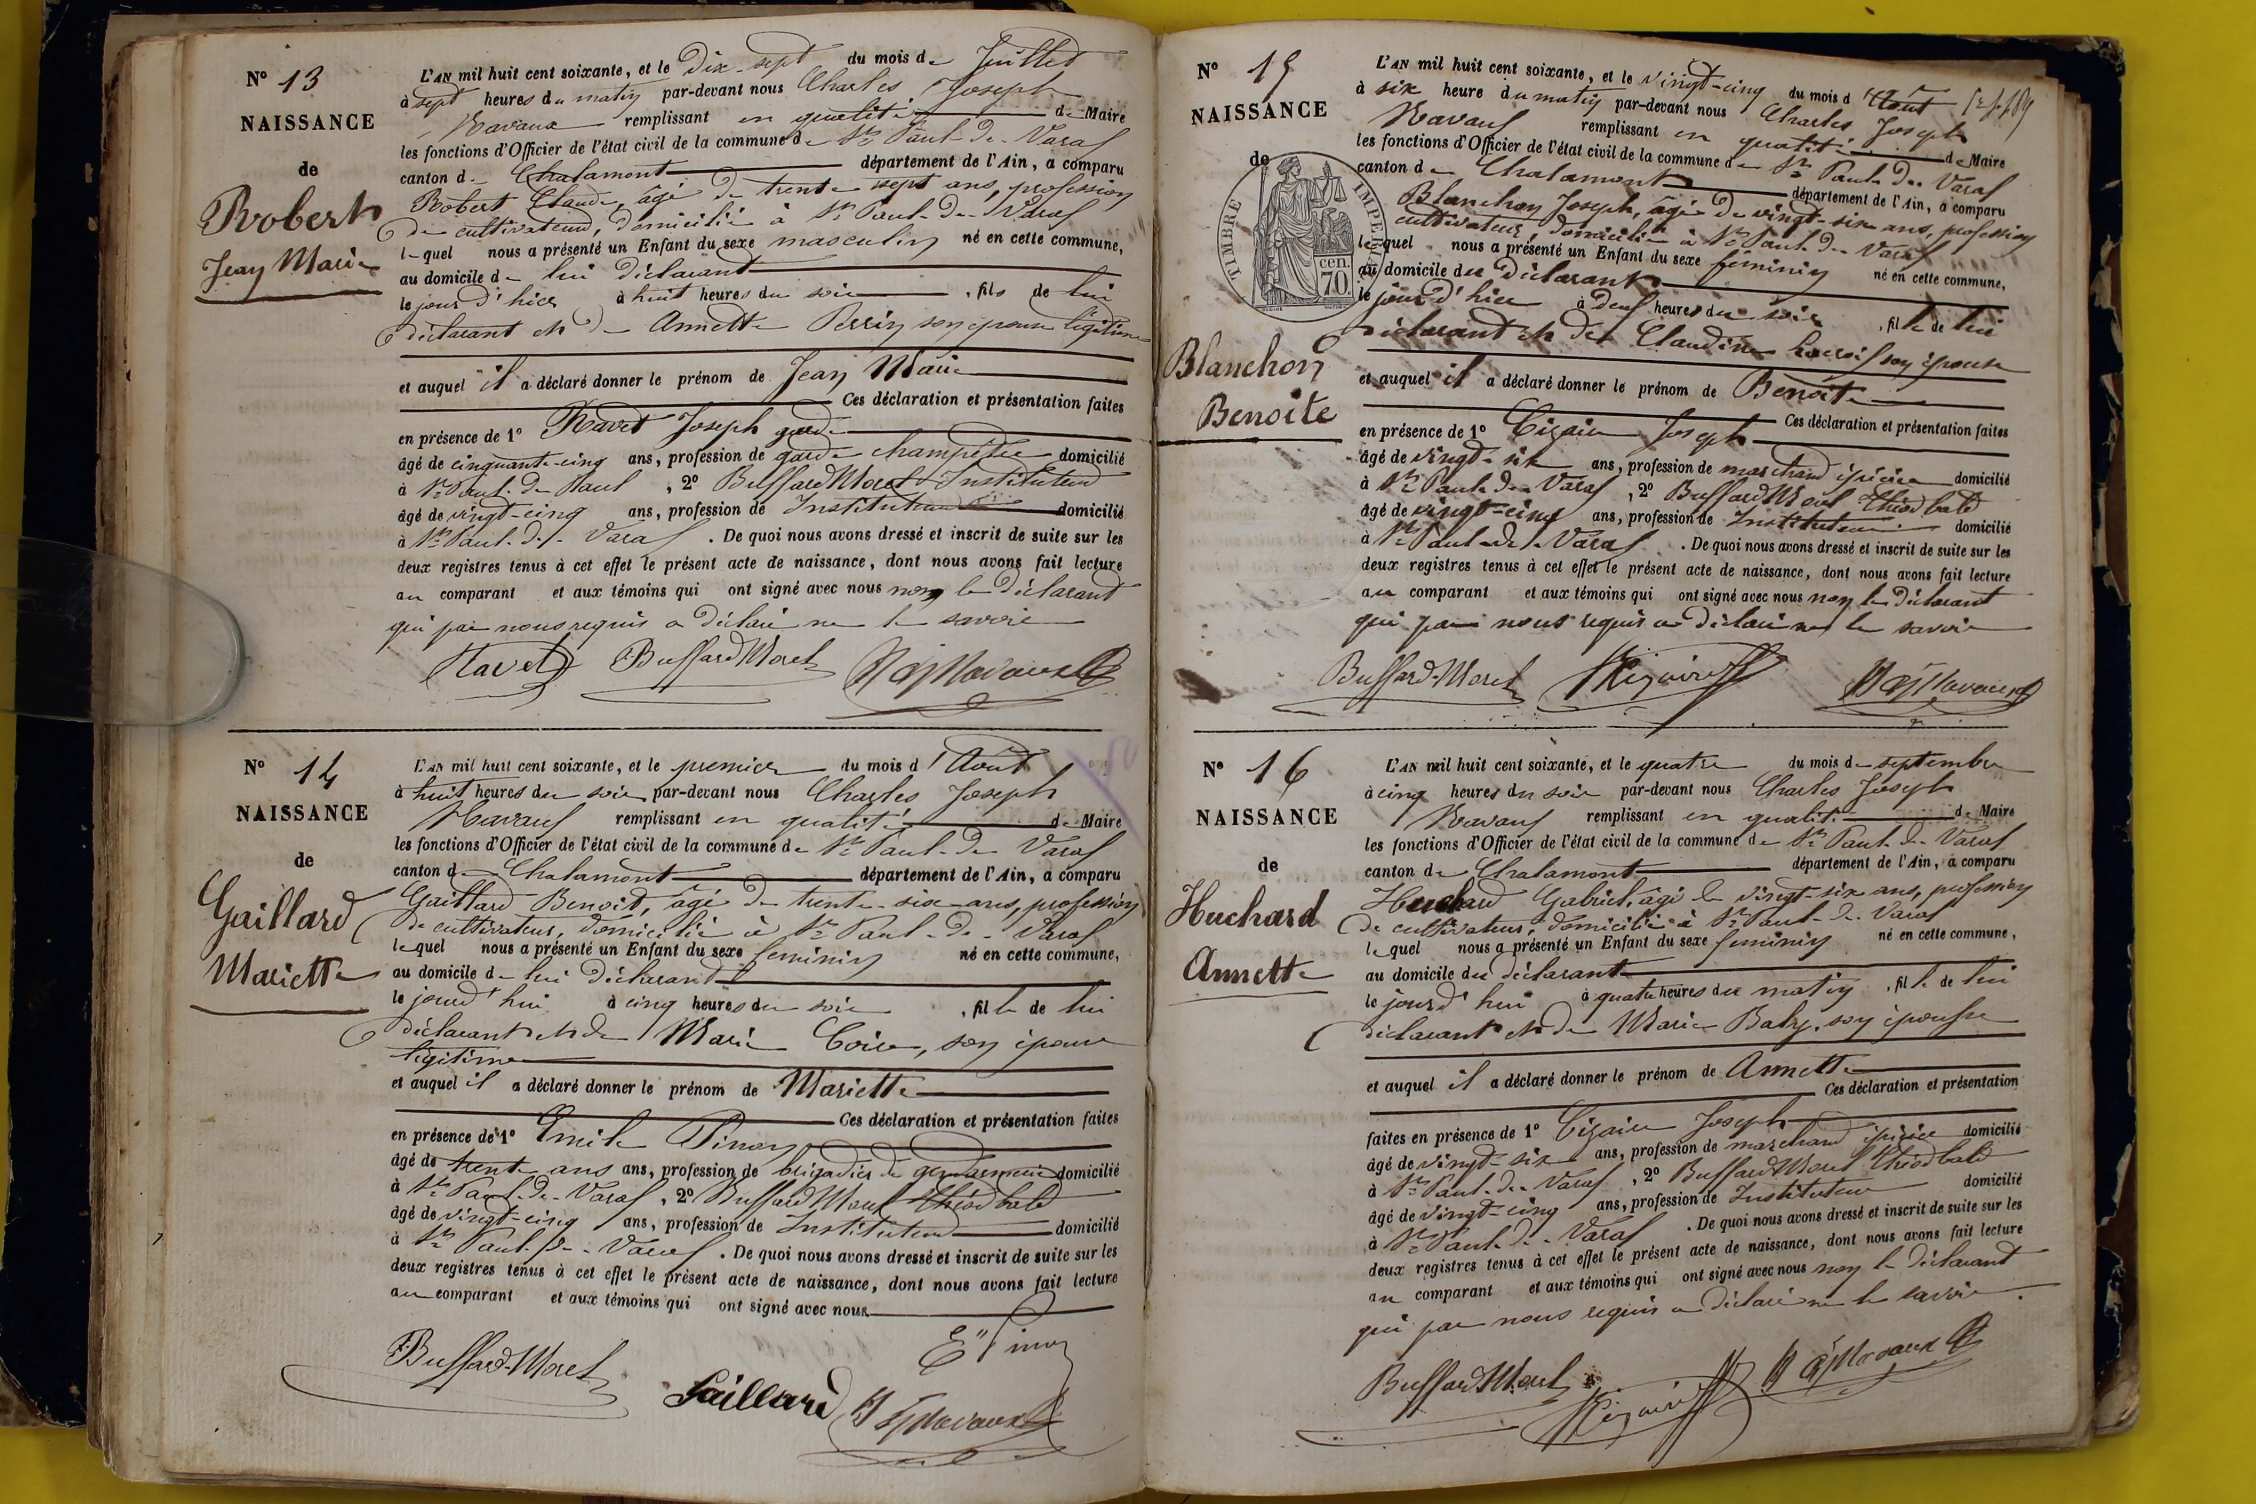 N° 13
NAISSANCE
de
Robert
Jean Marie
L'AN mil huit cent soixante, et le Dix-sept du mois de Juillet
à sept heures du matin par-devant nous Charles Joseph
Navaux remplissant en qualité de Maire
les fonctions d'Officier de l'état civil de la commune de St Paul-de-Varax
canton de Chalamont département de l'Ain, a comparu
Robert Claude, âgé de trente sept ans, profession
de cultivateur, domicilié à St Paul-de-Varax
lequel nous a présenté un Enfant du sexe masculin né en cette commune,
au domicile de lui déclarant
le jour d'hier à huit heures du soir, fils de lui
déclarant et de Annette Perrin son épouse légitime
et auquel il a déclaré donner le prénom de Jean Marie
Ces déclaration et présentation faites
en présence de 1° Joseph garde
âgé de cinquante-cinq ans, profession de garde champêtre domicilié
à St Paul-de-Paul, 2° Buffard Moret Instituteur
âgé de vingt-cinq ans, profession de Instituteur domicilié
à St Paul-de-Varax. De quoi nous avons dressé et inscrit de suite sur les
deux registres tenus à cet effet le présent acte de naissance, dont nous avons fait lecture
au comparant et aux témoins qui ont signé avec nous non le déclarant
qui par nous requis a déclaré ne le savoir
Buffard Moret
N° 14
NAISSANCE
de
Gaillard
Mariette
L'AN mil huit cent soixante, et le premier du mois d'Août
à huit heures du soir par-devant nous Charles Joseph
Navaux remplissant en qualité de Maire
les fonctions d'Officier de l'état civil de la commune de St Paul-de-Varax
canton de Chalamont département de l'Ain, a comparu
Gaillard Benoit, âgé de trente-six ans, profession
de cultivateur, domicilié à St Paul-de-Varax
lequel nous a présenté un Enfant du sexe feminin né en cette commune,
au domicile de lui déclarant
le jourd'hui à cinq heures du soir, fille de lui
déclarant et de Marie son épouse
légitime
et auquel il a déclaré donner le prénom de Mariette
Ces déclaration et présentation faites
en présence de 1° Emile Pinoy
âgé de trente ans ans, profession de brigadier de gendarmerie domicilié
à St Paul-de-Varax, 2° Buffard Moret Théodbald
âgé de vingt-cinq ans, profession de Instituteur domicilié
à St Paul-de-Varax. De quoi nous avons dressé et inscrit de suite sur les
deux registres tenus à cet effet le présent acte de naissance, dont nous avons fait lecture
au comparant et aux témoins qui ont signé avec nous
Buffard-Moret
Gaillard
N° 15
NAISSANCE
de
TIMBRE IMPERIAL
70 cen.
Blanchon
Benoite
L'AN mil huit cent soixante, et le vingt-cinq du mois d'Août
à six heure du matin par-devant nous Charles Joseph
Navaux remplissant en qualité de Maire
les fonctions d'Officier de l'état civil de la commune de St Paul-de-Varax
canton de Chalamont département de l'Ain, a comparu
Blanchon Joseph, âgé de vingt-six ans, profession
cultivateur, domicilié à St Paul-de-Varax
lequel nous a présenté un Enfant du sexe féminin né en cette commune,
au domicile du déclarant
le jour d'hier à deux heures du soir, fille de lui
déclarant et de Claudine son épouse
et auquel il a déclaré donner le prénom de Benoite
Ces déclaration et présentation faites
en présence de 1° Joseph
âgé de vingt-six ans, profession de marchand épicier domicilié
à St Paul-de-Varax, 2° Buffard Moret Théodbald
âgé de vingt-cinq ans, profession de Instituteur domicilié
à St Paul-de-Varax. De quoi nous avons dressé et inscrit de suite sur les
deux registres tenus à cet effet le présent acte de naissance, dont nous avons fait lecture
au comparant et aux témoins qui ont signé avec nous non le déclarant
qui par nous requis a déclaré ne le savoir
Buffard-Moret
N° 16
NAISSANCE
de
Huchard
Annette
L'AN mil huit cent soixante, et le quatre du mois de septembre
à cinq heures du soir par-devant nous Charles Joseph
Navaux remplissant en qualité de Maire
les fonctions d'Officier de l'état civil de la commune de St Paul-de-Varax
canton de Chalamont département de l'Ain, a comparu
Huchard Gabriel, âgé de vingt-six ans, profession
de cultivateur, domicilié à St Paul-de-Varax
lequel nous a présenté un Enfant du sexe feminin né en cette commune,
au domicile du déclarant
le jourd'hui à quatre heures du matin, fille de lui
déclarant et de Marie son épouse
et auquel il a déclaré donner le prénom de Annette
Ces déclaration et présentation
faites en présence de 1° Joseph
âgé de vingt-six ans, profession de marchand épicier domicilié
à St Paul-de-Varax, 2° Buffard Moret Théodbald
âgé de vingt-cinq ans, profession de Instituteur domicilié
à St Paul-de-Varax. De quoi nous avons dressé et inscrit de suite sur les
deux registres tenus à cet effet le présent acte de naissance, dont nous avons fait lecture
au comparant et aux témoins qui ont signé avec nous non le déclarant
qui par nous requis a déclaré ne le savoir.
Buffard Moret